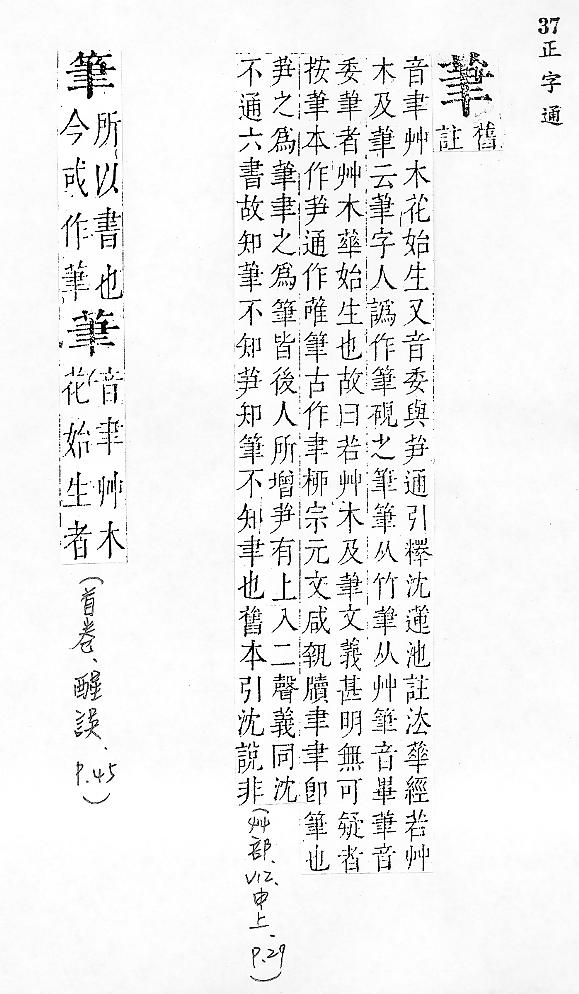 37 正字通
茟 舊註
音聿艸木花始生又音委與芛通引釋沈蓮池註法華經若艸
木及茟云茟字人譌作筆硯之筆筆从竹茟从艸筆音畢茟音
委茟者艸木華始生也故曰若艸木及茟文義甚明無可疑者
按茟本作芛通作蓶筆古作聿栁宗元文咸執牘聿聿卽筆也
芛之爲茟聿之爲筆皆後人所增芛有上入二聲義同沈
不通六書故知茟不知芛知筆不知聿也舊本引沈說非
(艸部、V12、申上、P.29)
筆 所以書也
今或作茟
茟 音聿艸木
花始生者
(首卷、醒誤、P.45)